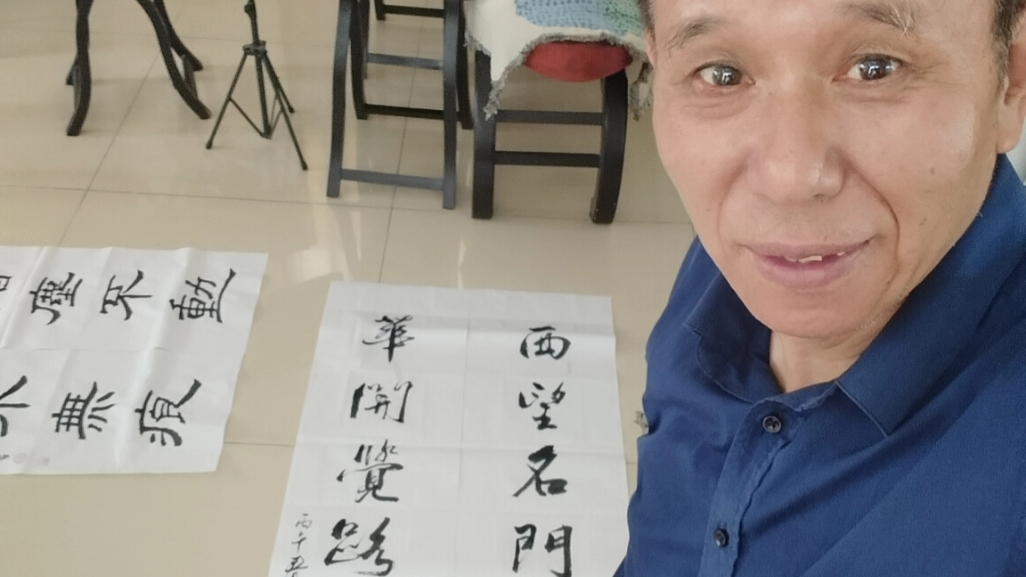 塵不動
水無痕
西望名門
華開覺路
丙午五